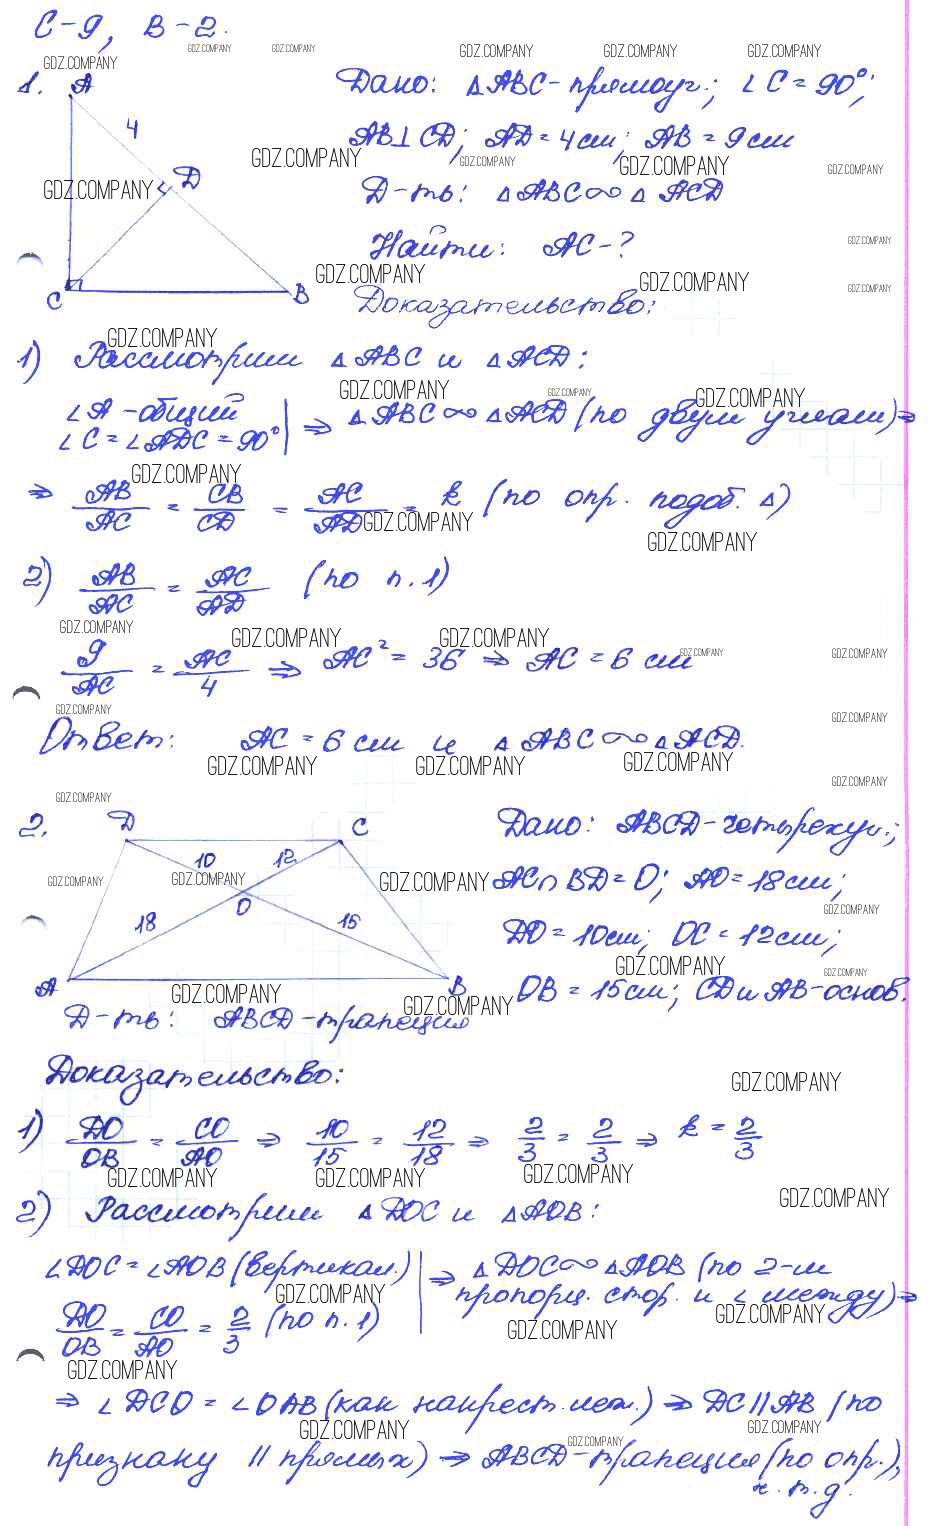 С-9, В-2.
1.
A
4
D
C
B
Дано: △ABC-прямоуг.; ∠C = 90°;
AB⊥CD; AD = 4 см; AB = 9 см
Д-ть: △ABC∾△ACD
Найти: AC-?
Доказательство:
1) Рассмотрим △ABC и △ACD:
∠A-общий
∠C = ∠ADC = 90° | ⇒ △ABC∾△ACD (по двум углам)⇒
⇒ AB/AC = CB/CD = AC/AD = k (по опр. подоб. △)
2) AB/AC = AC/AD (по п.1)
9/AC = AC/4 ⇒ AC² = 36 ⇒ AC = 6 см
Ответ: AC = 6 см и △ABC∾△ACD.
2.
D
C
10
12
O
18
15
A
B
Дано: ABCD-четырехуг.;
AC∩BD = O; AO = 18 см;
DO = 10 см; OC = 12 см;
OB = 15 см; CD и AB-основ.
Д-ть: ABCD-трапеция
Доказательство:
1) DO/OB = CO/AO ⇒ 10/15 = 12/18 ⇒ 2/3 = 2/3 ⇒ k = 2/3
2) Рассмотрим △DOC и △AOB:
∠DOC = ∠AOB (вертикал.) | ⇒ △DOC∾△AOB (по 2-м
DO/OB = CO/AO = 2/3 (по п.1) | пропорц. стор. и ∠ между)⇒
⇒ ∠DCO = ∠OAB (как накрест. леж.) ⇒ DC||AB (по
признаку || прямых) ⇒ ABCD-трапеция (по опр.),
ч.т.д.
GDZ.COMPANY